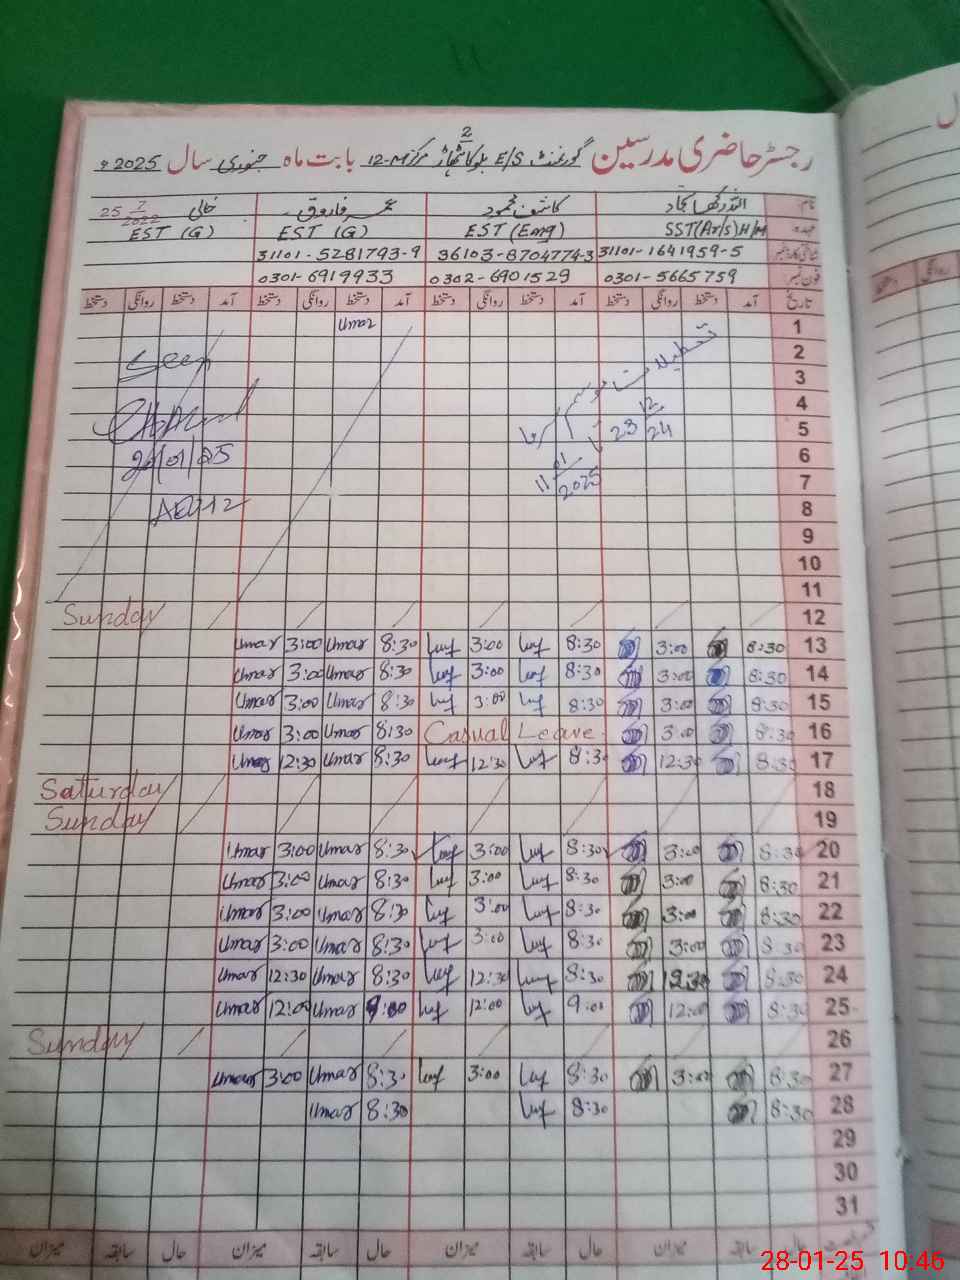 2
رجسٹر حاضری مدرسین گورنمنٹ E/S مرکز 12-M بابت ماہ جنوری سال 2025ء
نام کاشف محمود عمر فاروق خالی 25/7/2022
عہدہ SST(Ar/S)H/M EST (Eng) EST (G) EST (G)
شناختی کارڈ نمبر 31101-1641959-5 36103-8704774-3 31101-5281793-9
فون نمبر 0301-5665759 0302-6901529 0301-6919933
تاریخ آمد دستخط روانگی دستخط آمد دستخط روانگی دستخط آمد دستخط روانگی دستخط آمد دستخط روانگی دستخط
1 Umar
2 تعطیلات موسم سرما
3 Seen
4 23 12
5 24
6 11 01
7 2025
8 AEO 12
9
10
11
12 Sunday
13 8:30 3:00 8:30 3:00 8:30 Umar 3:00 Umar
14 8:30 3:00 8:30 3:00 8:30 Umar 3:00 Umar
15 8:30 3:00 8:30 3:00 8:30 Umar 3:00 Umar
16 8:30 3:00 Casual Leave 8:30 Umar 3:00 Umar
17 8:30 12:30 8:30 12:30 8:30 Umar 12:30 Umar
18 Saturday
19 Sunday
20 8:30 3:00 8:30 3:00 8:30 Umar 3:00 Umar
21 8:30 3:00 8:30 3:00 8:30 Umar 3:00 Umar
22 8:30 3:00 8:30 3:00 8:30 Umar 3:00 Umar
23 8:30 3:00 8:30 3:00 8:30 Umar 3:00 Umar
24 8:30 12:30 8:30 12:30 8:30 Umar 12:30 Umar
25 8:30 12:00 9:00 12:00 9:00 Umar 12:00 Umar
26 Sunday
27 8:30 3:00 8:30 3:00 8:30 Umar 3:00 Umar
28 8:30 8:30 8:30 Umar
29
30
31
حال سابقہ میزان حال سابقہ میزان حال سابقہ میزان حال سابقہ میزان
28-01-25 10:46